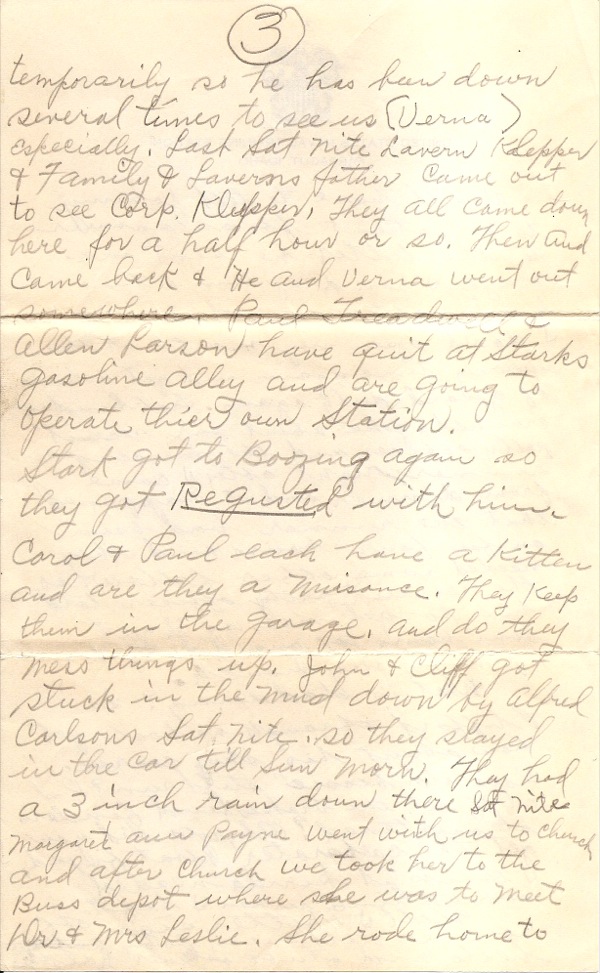 3
temporarily so he has been down
several times to see us (Verna)
especially. Last Sat Nite Lavern Klepper
& Family & Laverns father Came out
to see Corp. Klepper, They all Come down
here for a half hour or so. Then and
Came back & He and Verna went out
somewhere. Paul Treadwell &
Allen Larson have quit at Starks
gasoline alley and are going to
operate thier own Station.
Stark got to Boozing again so
they got Regusted with him.
Carol & Paul each have a Kitten
and are they a nuisance. They Keep
them in the garage, and do they
mess things up. John & Cliff got
stuck in the mud down by Alfred
Carlsons Sat, nite. so they stayed
in the car till Sun Morn. They had
a 3 inch rain down there Sat nite
Margaret ann Payne went with us to church
and after church we took her to the
Buss depot where she was to meet
Dr & Mrs Leslie. She rode home to